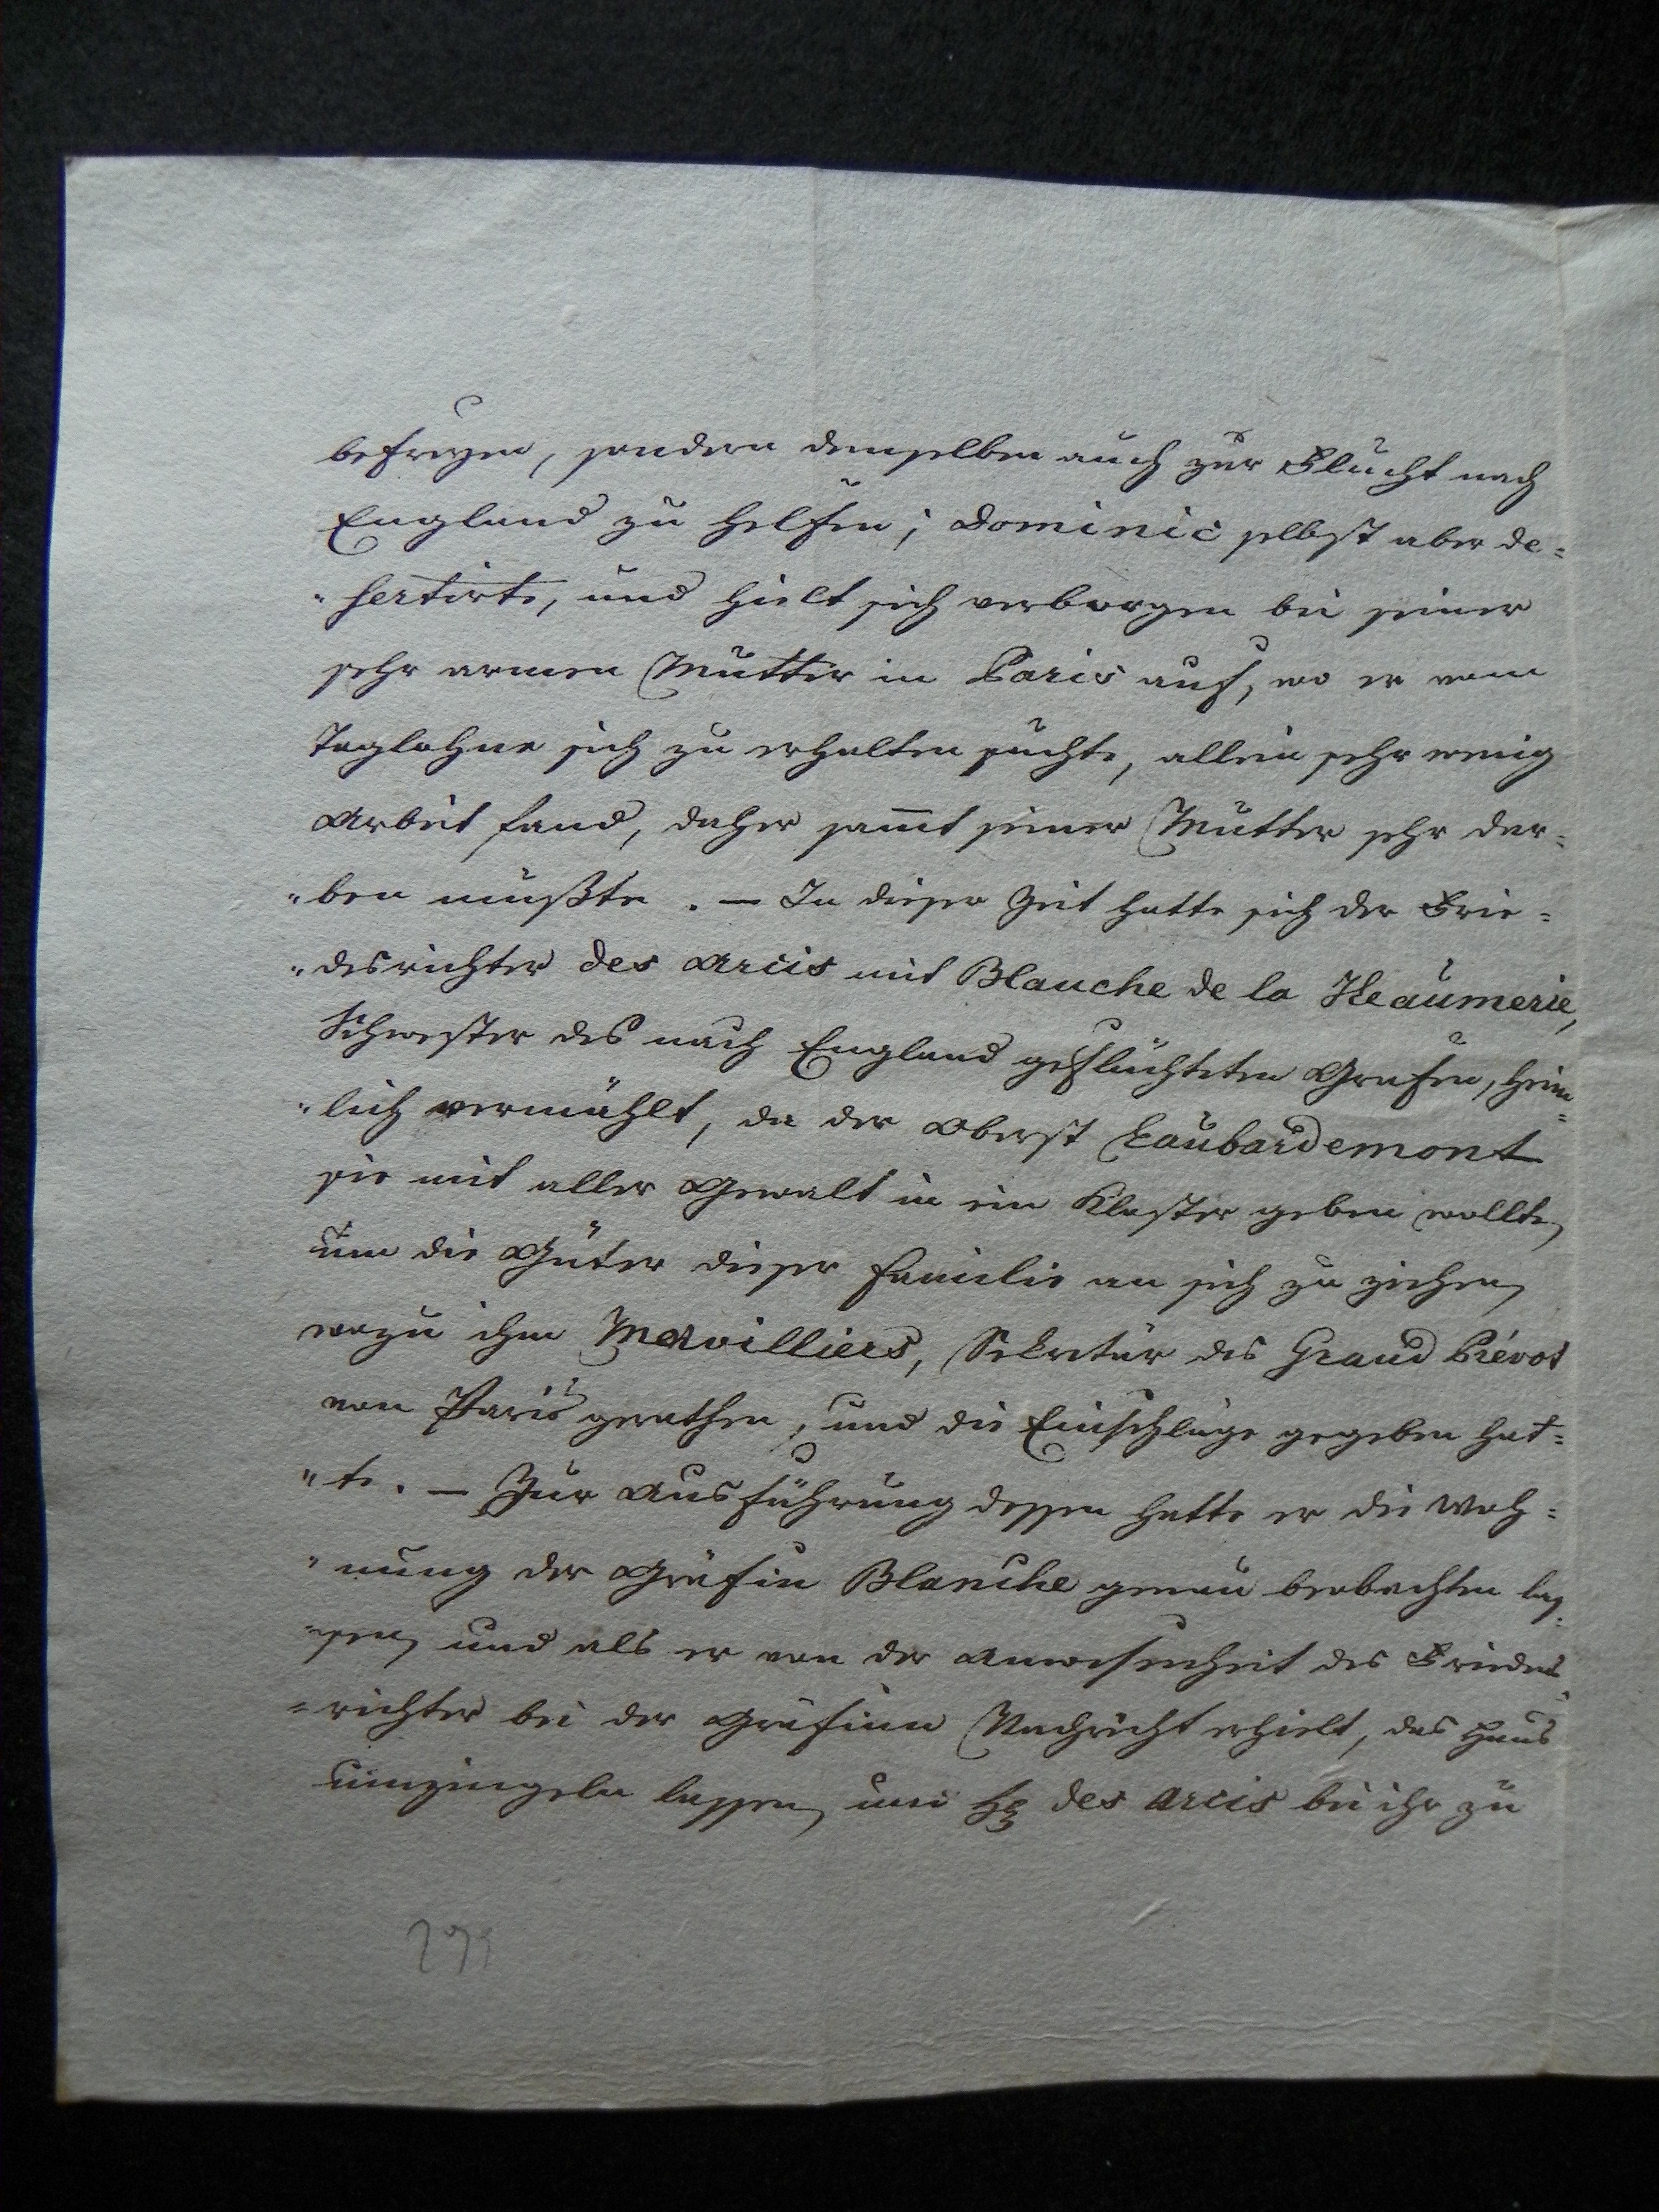 befreyen, sondern demselben auch zur Flucht nach
England zu helfen; Dominic selbst aber de=
"sertirte, und hielt sich verborgen bei seiner
sehr armen Mutter in Paris auf, wo er vom
Taglohne sich zu erhalten suchte, allein sehr wenig
Arbeit fand, daher sam̅t seiner Mutter sehr dar=
"ben mußte. – In dieser Zeit hatte sich der Frie=
"desrichter des Arcis mit Blanche de la Heaumerie,
Schwester des nach England geflüchteten Grafen, heim=
"lich vermählt, da der Oberst Laubardemont
sie mit aller Gewalt in ein Kloster geben wollte,
um die Güter dieser Familie an sich zu ziehen,
wozu ihm Morvilliers, Sekretär des Grand Prévot
von Paris gerathen, und die Einschläge gegeben hat=
"te. – Zur Ausführung dessen hatte er die Woh=
"nung der Gräfin Blanche genau beobachten las=
"sen, und als er von der Anwesenheit des Friedens=
"richter bei der Gräfinn Nachricht erhielt, das Haus
umzingeln lassen, um H: des Arcis bei ihr zu